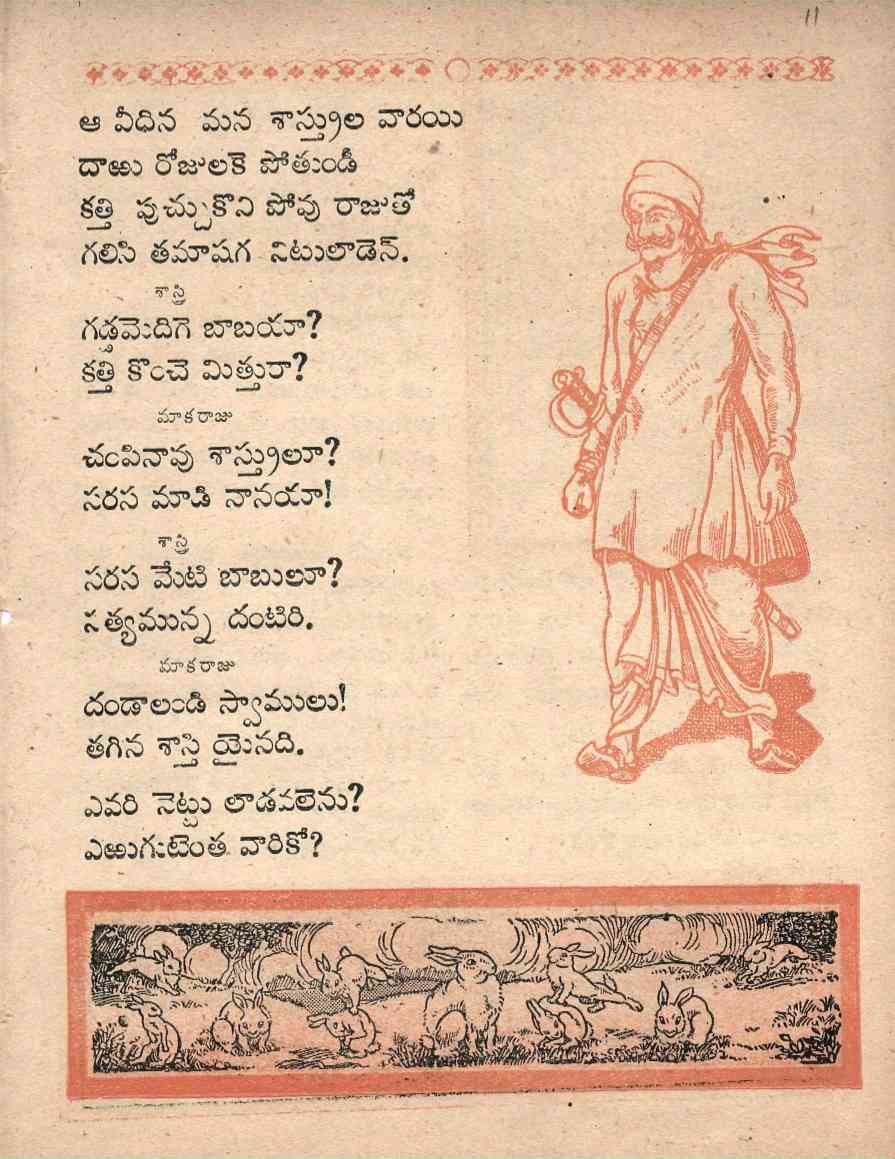 11
ఆ వీధిన మన శాస్త్రుల వారయి
దాఱు రోజులకె పోతుండీ
కత్తి పుచ్చుకొని పోవు రాజుతో
గలిసి తమాషగ నిటులాడెన్.
శాస్త్రి
గడ్డమెదిగె బాబయా?
కత్తి కొంచె మిత్తురా?
మాకరాజు
చంపినావు శాస్త్రులూ?
సరస మాడి నానయా!
శాస్త్రి
సరస మేటి బాబులూ?
సత్యమున్న దంటిరి.
మాకరాజు
దండాలండి స్వాములు!
తగిన శాస్తి యైనది.
ఎవరి నెట్టు లాడవలెను?
ఎఱుగుటెంత వారికో?